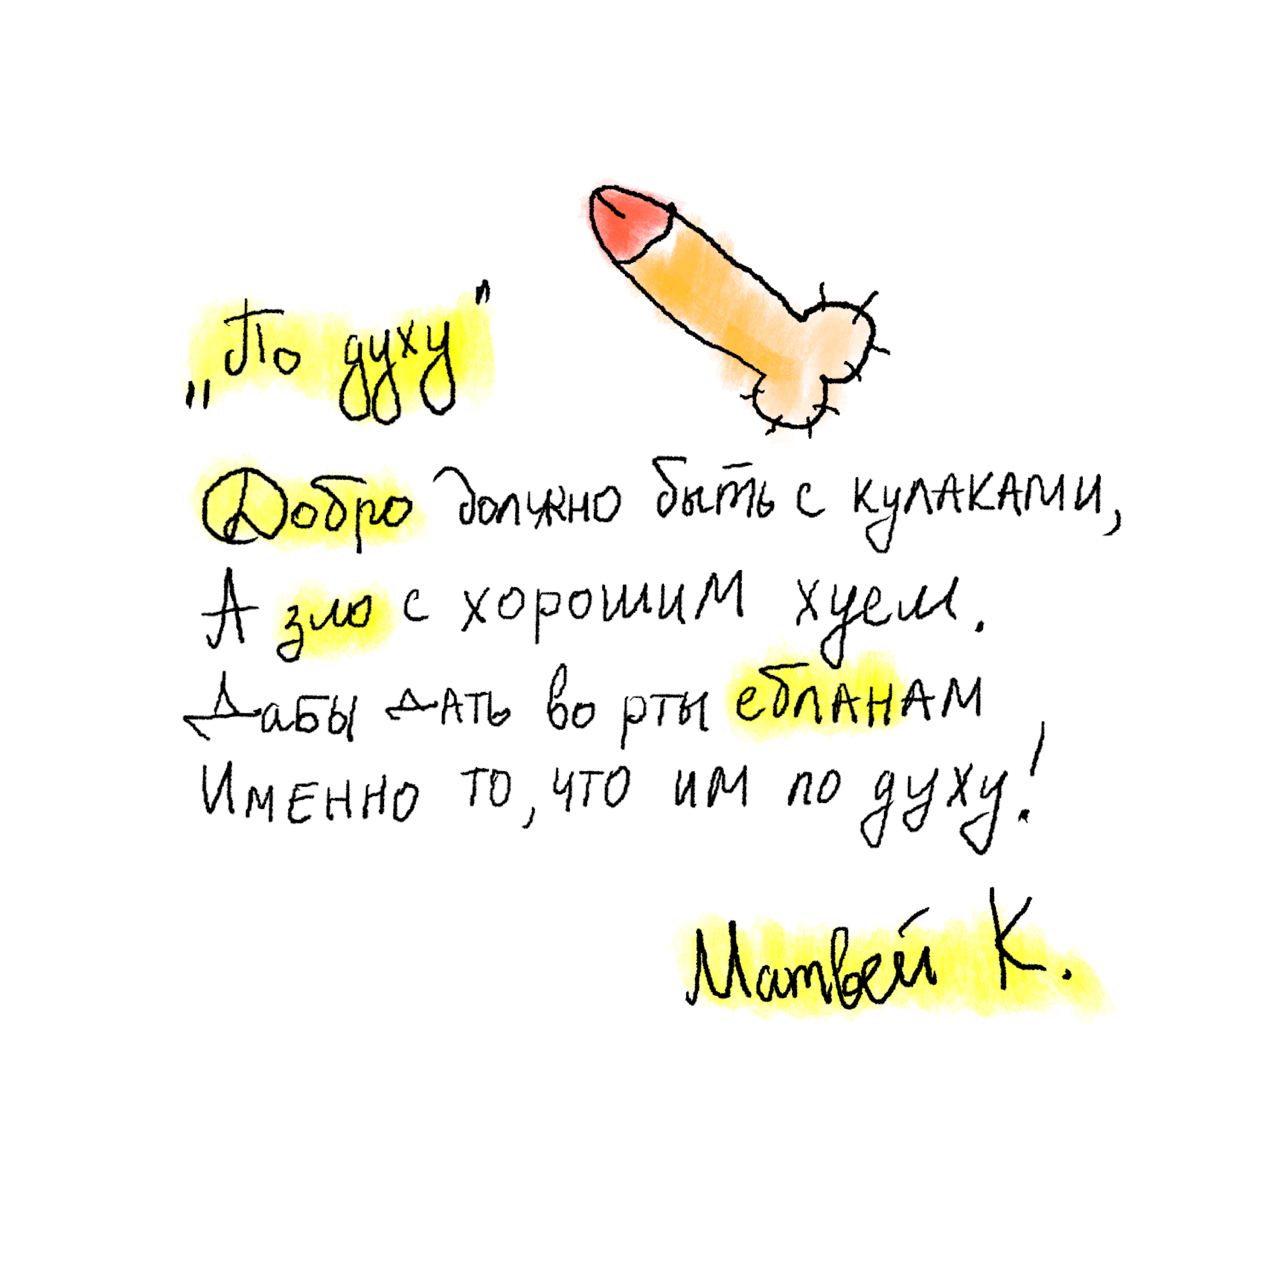 „По духу"
Добро должно быть с кулаками,
А зло с хорошим хуем.
Дабы дать во рты ебланам
Именно то, что им по духу!
Матвей К.